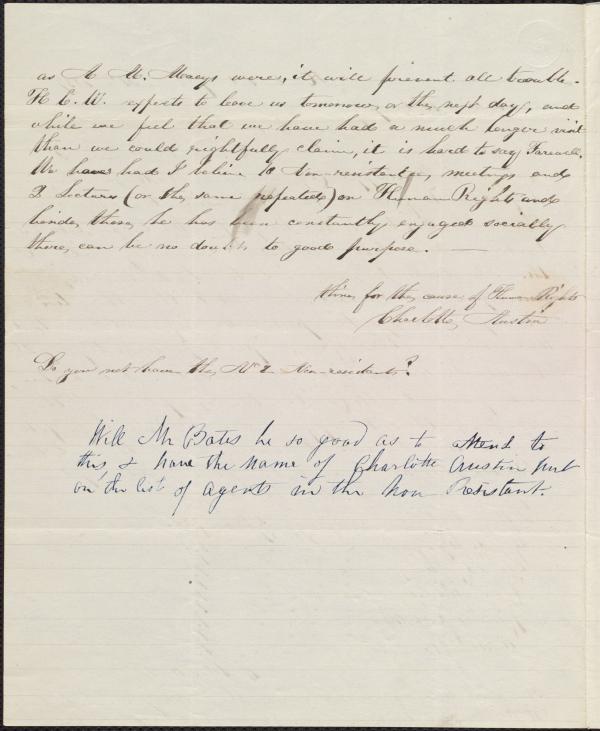 as A M. Macys were, it will prevent all trouble.
H C. W. expects to leave us tomorrow, or the next day, and
while we feel that we have had a much longer visit
than we could rightfully claim, it is hard to say Farewell.
We have had I believe 10 Non-resistance meetings and
2 Lectures (or the same repeated) on Human Rights and
beside, these, he has been constantly engaged socially
there can be no doubt to good purpose. —
thine for the cause of Human Rights
Charlotte Austin
Do you not have the No 2 Non-resistants?
Will Mr Bates be so good as to attend to
this, & have the name of Charlotte Austin put
on the list of agents in the Non Resistant.